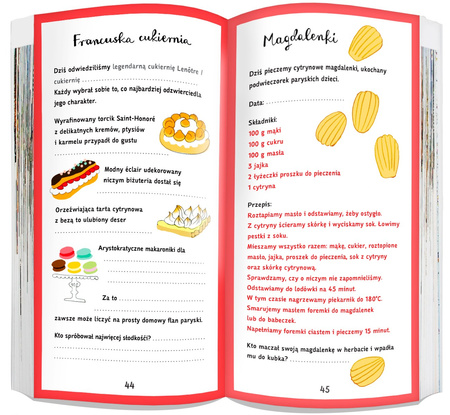 Francuska cukiernia
Dziś odwiedziliśmy legendarną cukiernię Lenôtre i
cukiernię
Każdy wybrał sobie to, co najbardziej odzwierciedla
jego charakter.
Wyrafinowany torcik Saint-Honoré
z delikatnych kremów, ptysiów
i karmelu przypadł do gustu
Modny éclair udekorowany
niczym biżuteria dostał się
Orzeźwiająca tarta cytrynowa
z bezą to ulubiony deser
Arystokratyczne makaroniki dla
Za to
zawsze może liczyć na prosty domowy flan paryski.
Kto spróbował najwięcej słodkości?
44
Magdalenki
Dziś pieczemy cytrynowe magdalenki, ukochany
podwieczorek paryskich dzieci.
Data:
Składniki:
100 g mąki
100 g cukru
100 g masła
3 jajka
2 łyżeczki proszku do pieczenia
1 cytryna
Przepis:
Roztapiamy masło i odstawiamy, żeby ostygło.
Z cytryny ścieramy skórkę i wyciskamy sok. Łowimy
pestki z soku.
Mieszamy wszystko razem: mąkę, cukier, roztopione
masło, jajka, proszek do pieczenia, sok z cytryny
oraz skórkę cytrynową.
Sprawdzamy, czy o niczym nie zapomnieliśmy.
Odstawiamy do lodówki na 45 minut.
W tym czasie nagrzewamy piekarnik do 180°C.
Smarujemy masłem foremki do magdalenek
lub do babeczek.
Napełniamy foremki ciastem i pieczemy 15 minut.
Kto maczał swoją magdalenkę w herbacie i wpadła
mu do kubka?
45